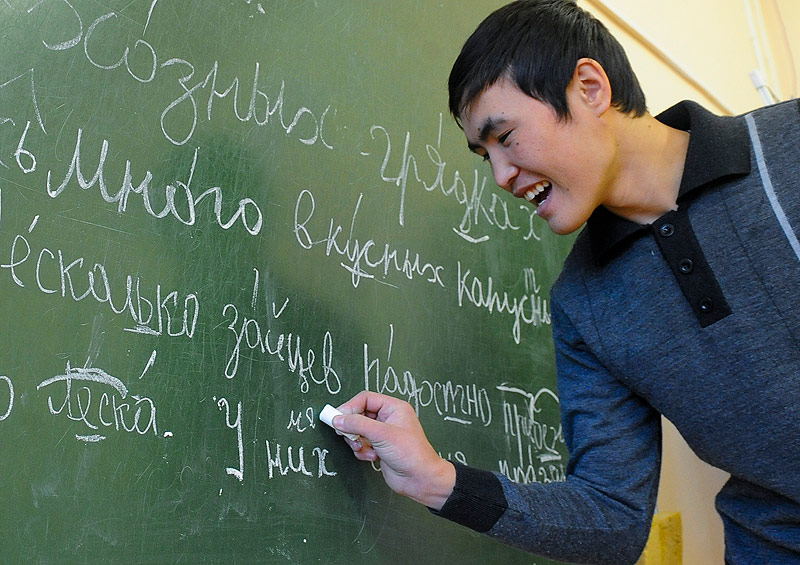 хозных грядках
ь много вкусных капустн
есколько зайцев радостно
о леска. У них